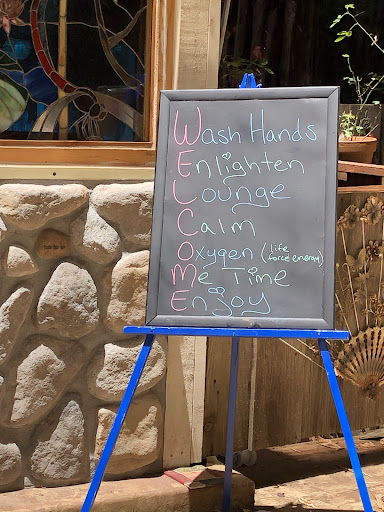 Wash Hands
Enlighten
Lounge
Calm
Oxygen (life force energy)
Me Time
Enjoy